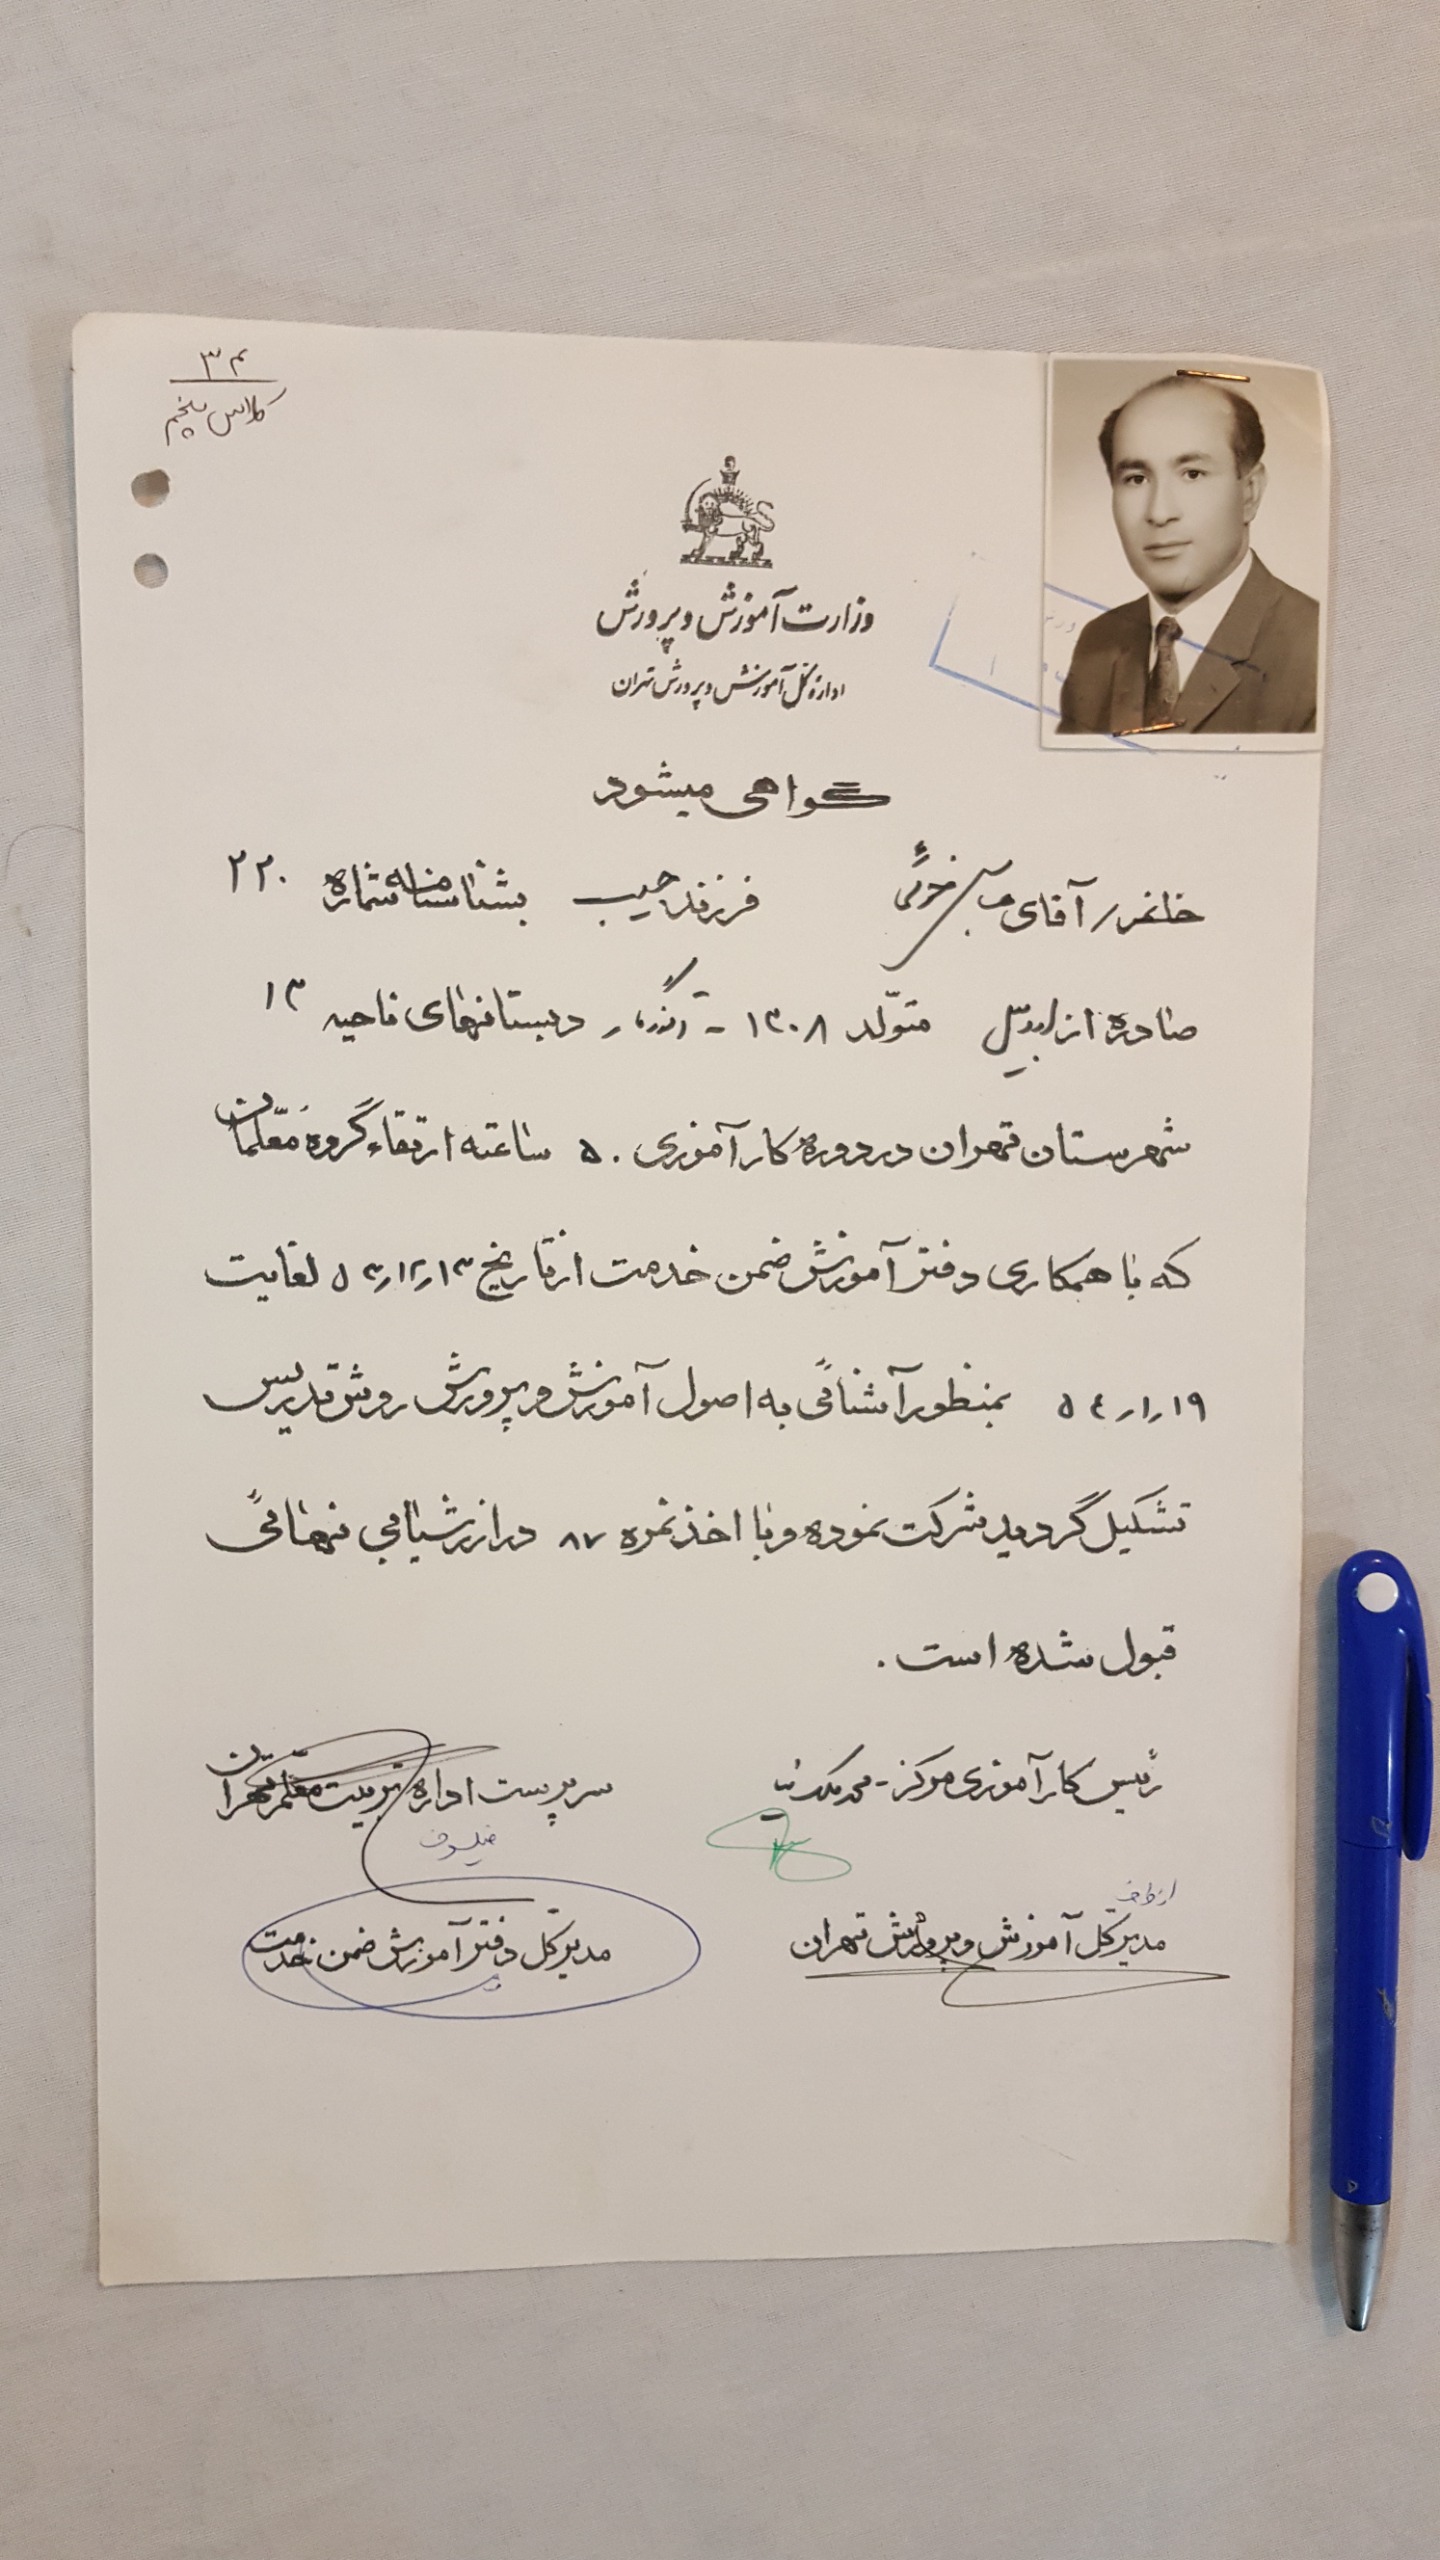 ۳۴
کلاس پنجم
وزارت آموزش و پرورش
اداره کل آموزش و پرورش تهران
گواهی میشود
خانم / آقای خوئی فرزند حبیب بشناسنامه شماره ۲۲۰
صادره از اردبیل متولد ۱۳۰۸ - آموزگار دبستانهای ناحیه ۱۳
شهرستان تهران در دوره کارآموزی ۵۰ ساعته ارتقاء گروه معلمان
که با همکاری دفتر آموزش ضمن خدمت از تاریخ ۵۳/۱۲/۱۳ لغایت
۵٤/۱/۱۹ بمنظور آشنائی به اصول آموزش و پرورش روش تدریس
تشکیل گردید شرکت نموده و با اخذ نمره ۸۷ در ارزشیابی نهائی
قبول شده است .
رئیس کارآموزی مرکز - محمد سرپرست اداره تربیت معلم تهران
فیلسوف
از طرف
مدیرکل آموزش و پرورش تهران مدیرکل دفتر آموزش ضمن خدمت